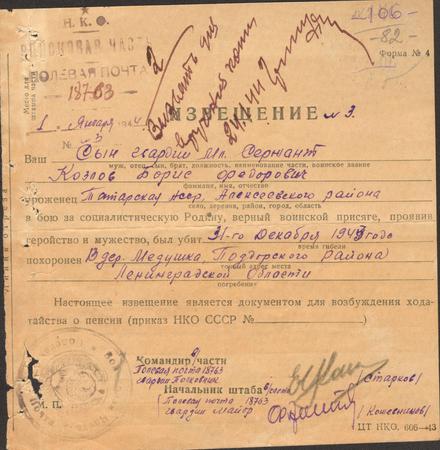 106
Н. К. О.
ВОЙСКОВАЯ ЧАСТЬ
82
ПОЛЕВАЯ ПОЧТА
Форма № 4
18763
1 января 1944
№ 3
ИЗВЕЩЕНИЕ № 3.
Ваш Сын гвардии Мл. Сержант
муж, отец, сын, брат, должность, наименование части, воинское звание
Козлов Борис Федорович
фамилия, имя, отчество
уроженец Татарская АССР, Алексеевского района
село, деревня, район, город, область
в бою за социалистическую Родину, верный воинской присяге, проявив
геройство и мужество, был убит 31-го декабря 1943 года
время гибели
похоронен В дер. Медушка, района
Ленинградской Области
погребение
Настоящее извещение является документом для возбуждения хода-
тайства о пенсии (приказ НКО СССР №
Командир части
Полевая почта 18763
гвардии
/Старков/
Начальник штаба
Полевая почта 18763
гвардии Майор
/Кожевников/
М. П.
ЦТ НКО. 606—43